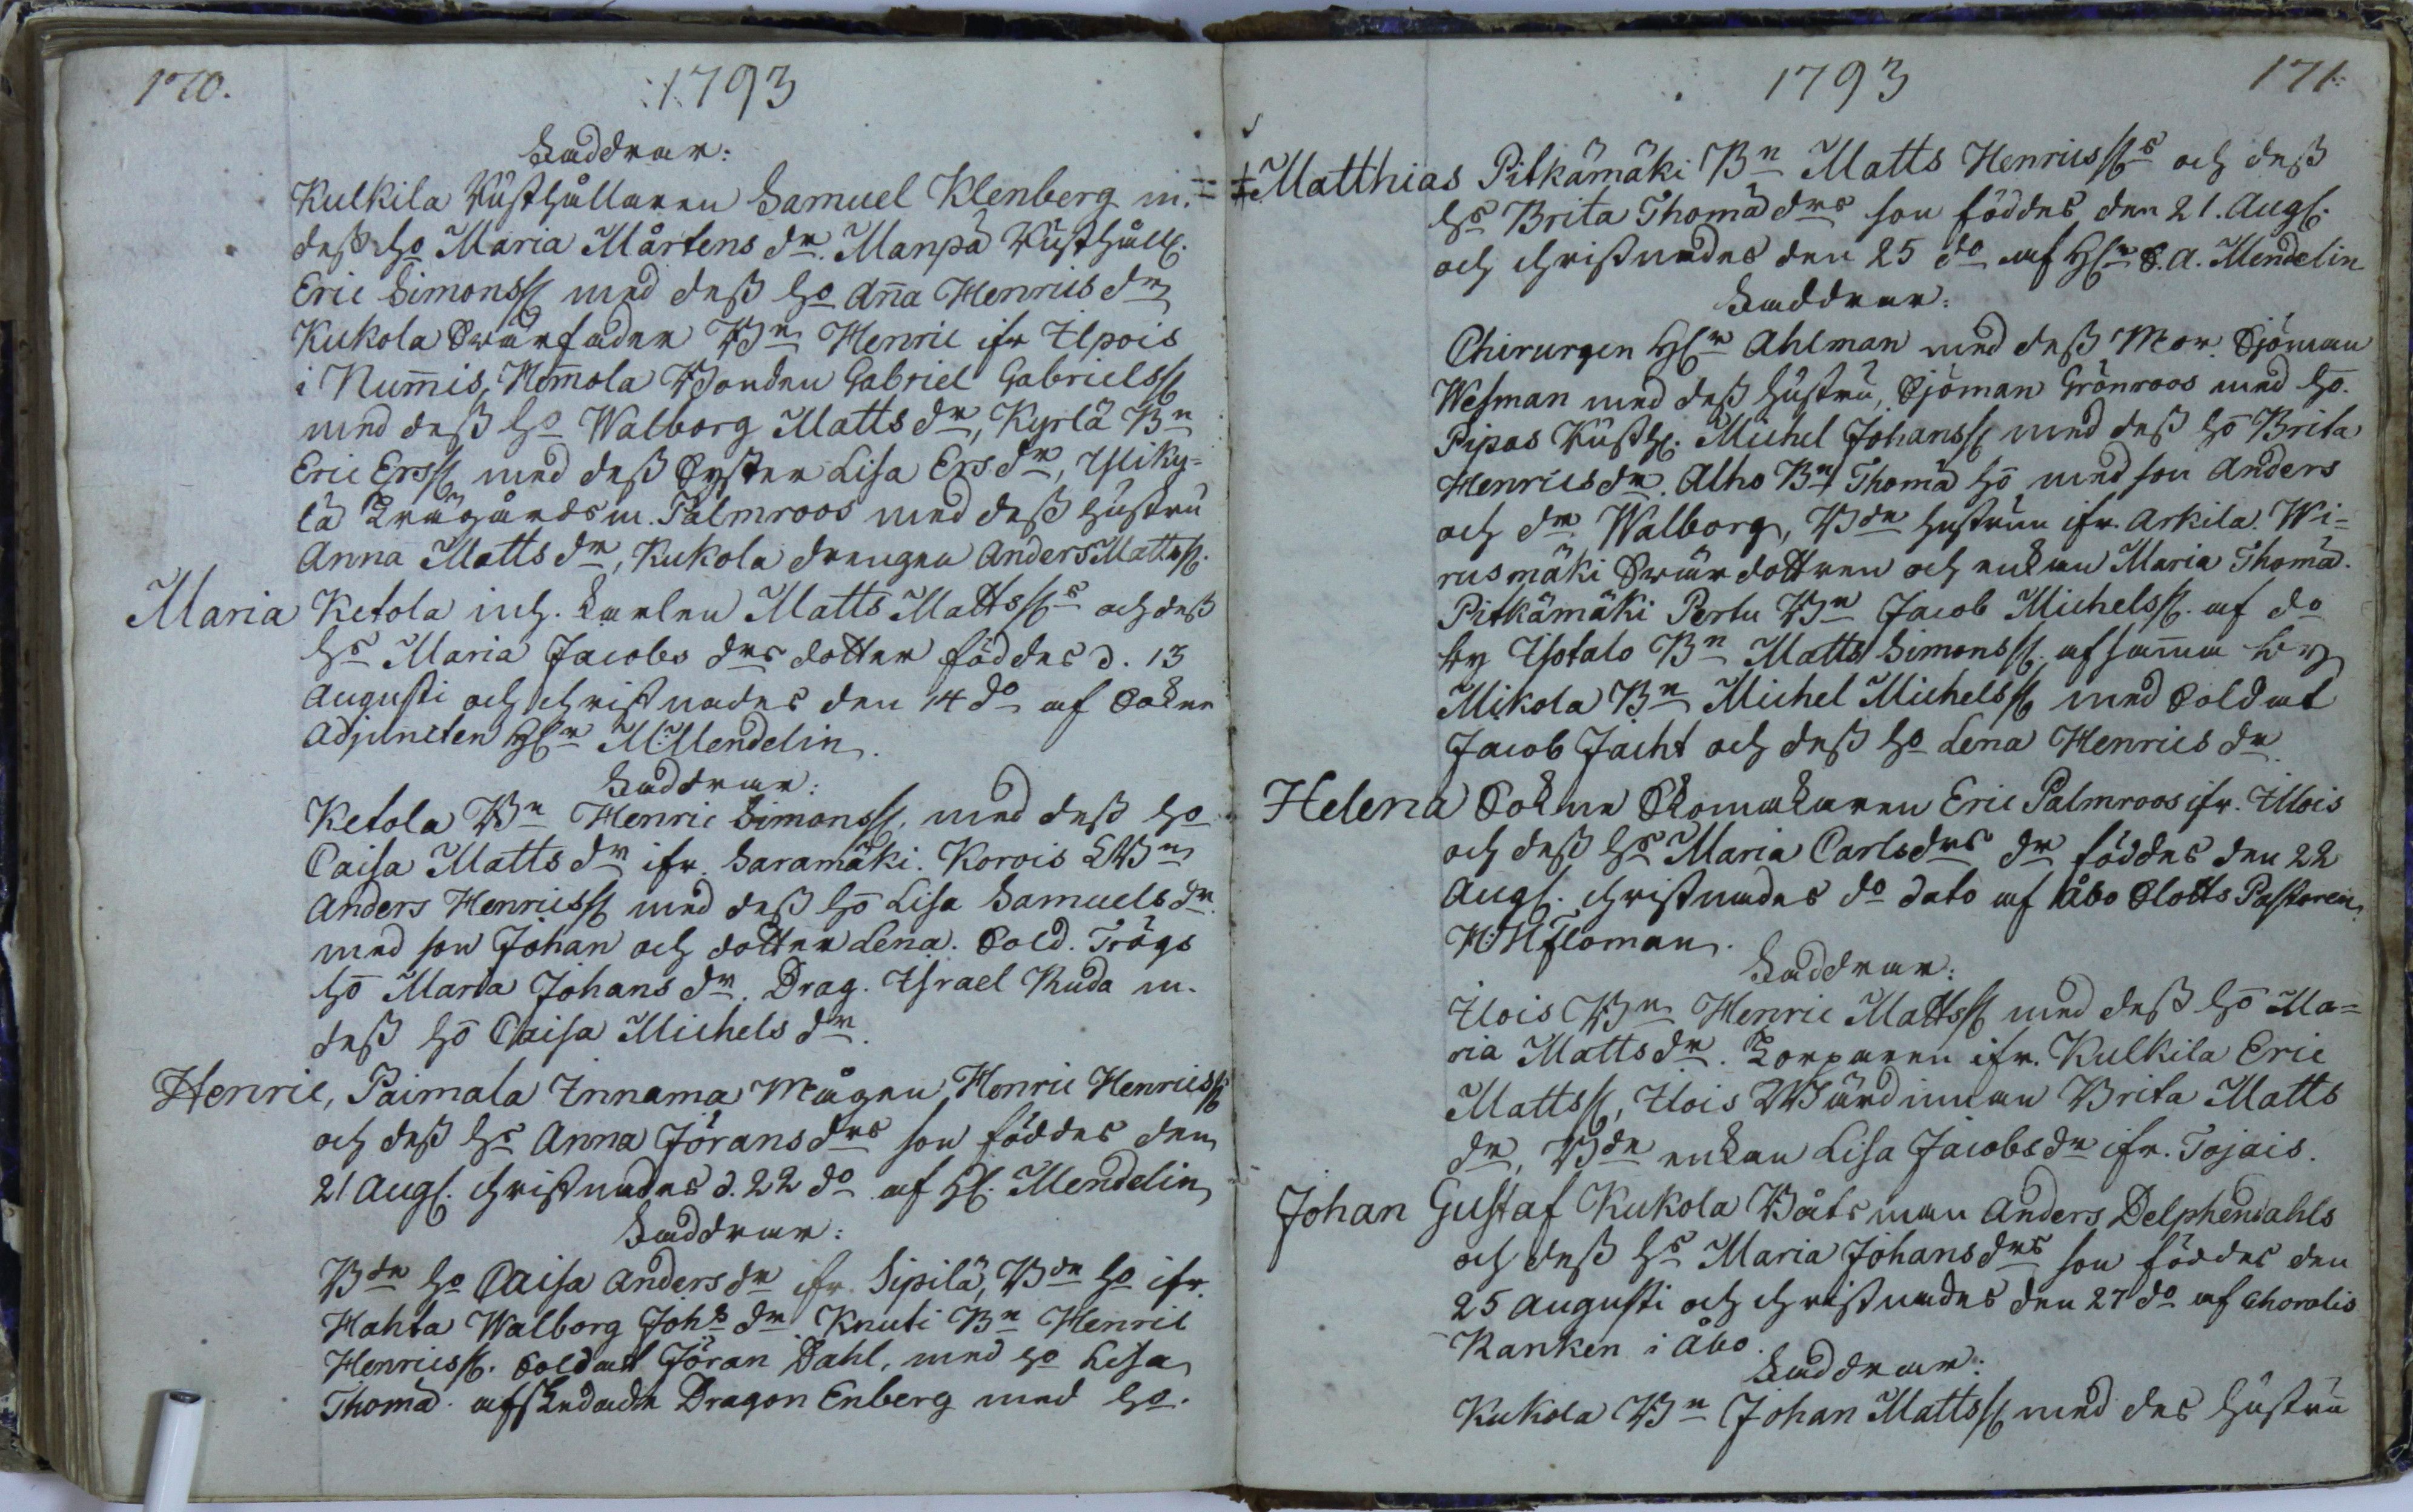 170.
1793
Faddrar:
Kulkila Rusthållaren Samuel Klenberg m.
dess ho Maria Mårtens dr. Manpä Rusthåll.
Eric Simonss. med dess ho Aña Henrics dr
Kukola Swärfader Bn Henric ifr Ilpois
i Num̄is, Hom̄ola Bonden Gabriel Gabrielss.
med dess ho Walborg Matts dr, Kyrlä Bn
Eric Erss. med dess Syster Lisa Ers dr, Yliky-
lä Trägårdsm. Palmroos med dess hustru
Anna Matts dr, Kukola drengen Anders Mattss.
Maria Ketola inh. karlen Matts Mattss.s och dess
hs Maria Jacobs drs dotter föddes d. 13
Augusti och christnades den 14 do af Sokne
Adjuncten Hr M: Mendelin.
Faddrar:
Ketola Bn Henric Simonss. med dess ho
Caisa Matts dr ifr. Saramäki. Korois LBn
Anders Henricss. med dess ho Lisa Samuels dr.
med son Johan och dotter Lena. Sold. Trögs
ho Maria Johans dr. Drag. Israel Ruda m.
dess ho Caisa Michels dr.
Henric, Paimala Innama Mågen Henric Henricss.
och dess hs Anna Jörans drs son föddes den
21 Aug. christnades d. 22 do af H. Mendelin
Faddrar:
Bdr ho Caisa Anders dr ifr. Sipilä, Bdr ho ifr.
Hahta Walborg Johs dr Knuti Bn Henric
Henricss. Soldat Jöran Dahl, med ho Lisa
Thomæd. afskedade Dragon Enberg med ho.
1793
171.
Matthias Pitkämäki Bn Matts Henricss.s och dess
hs Brita Thomæ drs son föddes den 21. Aug.
och christnades den 25 do af Hr S. A. Mendelin
Faddrar:
Chirurgen Hr Ahlman med dess Mor. Sjöman
Wesman med dess hustru, Sjöman Grönroos med ho.
Pipas Rusth. Michel Johanss. med dess ho Brita
Henrics dr. Alho Bn Thomæ ho med son Anders
och dr Walborg, Bdr hustrun ifr. Arkila. Wi-
rusmäki Swärdottren och enkan Maria Thomæd.
Pitkämäki Pertu Bn Jacob Michelss. af do
by Isotalo Bn Matts Simonss. af sam̄a by
Mikola Bn Michel Michelss. med Soldat
Jacob Jacht och dess ho Lena Henrics dr.
Helena Sokne Skomakaren Eric Palmroos ifr. Ilois
och dess hs Maria Carls drs dr föddes den 22
Aug. christnades do dato af Åbo Slotts Pastoren
Floman.
Faddrar:
Ilois Bn Henric Mattss. med dess ho Ma-
ria Matts dr. Torparen ifr. Kulkila Eric
Mattss, Ilois Wärdinnan Brita Matts
dr, Bdr enkan Lisa Jacobs dr ifr. Tojais.
Johan Gustaf Kukola Båtsman Anders Delphendahls
och dess hs Maria Johans drs son föddes den
25 Augusti och christnades den 27 do af Choralis
Ranken i Åbo.
Faddrar:
Kukola Bn Johan Mattss. med des hustru